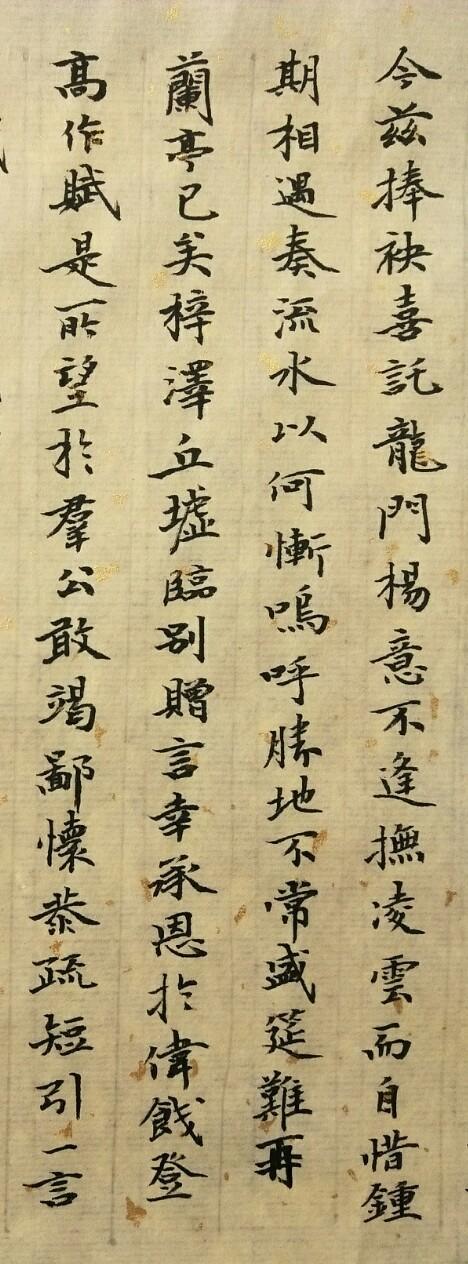 今茲捧袂喜託龍門楊意不逢撫凌雲而自惜鍾
期相遇奏流水以何慚嗚呼勝地不常盛筵難再
蘭亭已矣梓澤丘墟臨別贈言幸承恩於偉餞登
高作賦是所望於羣公敢竭鄙懷恭疏短引一言